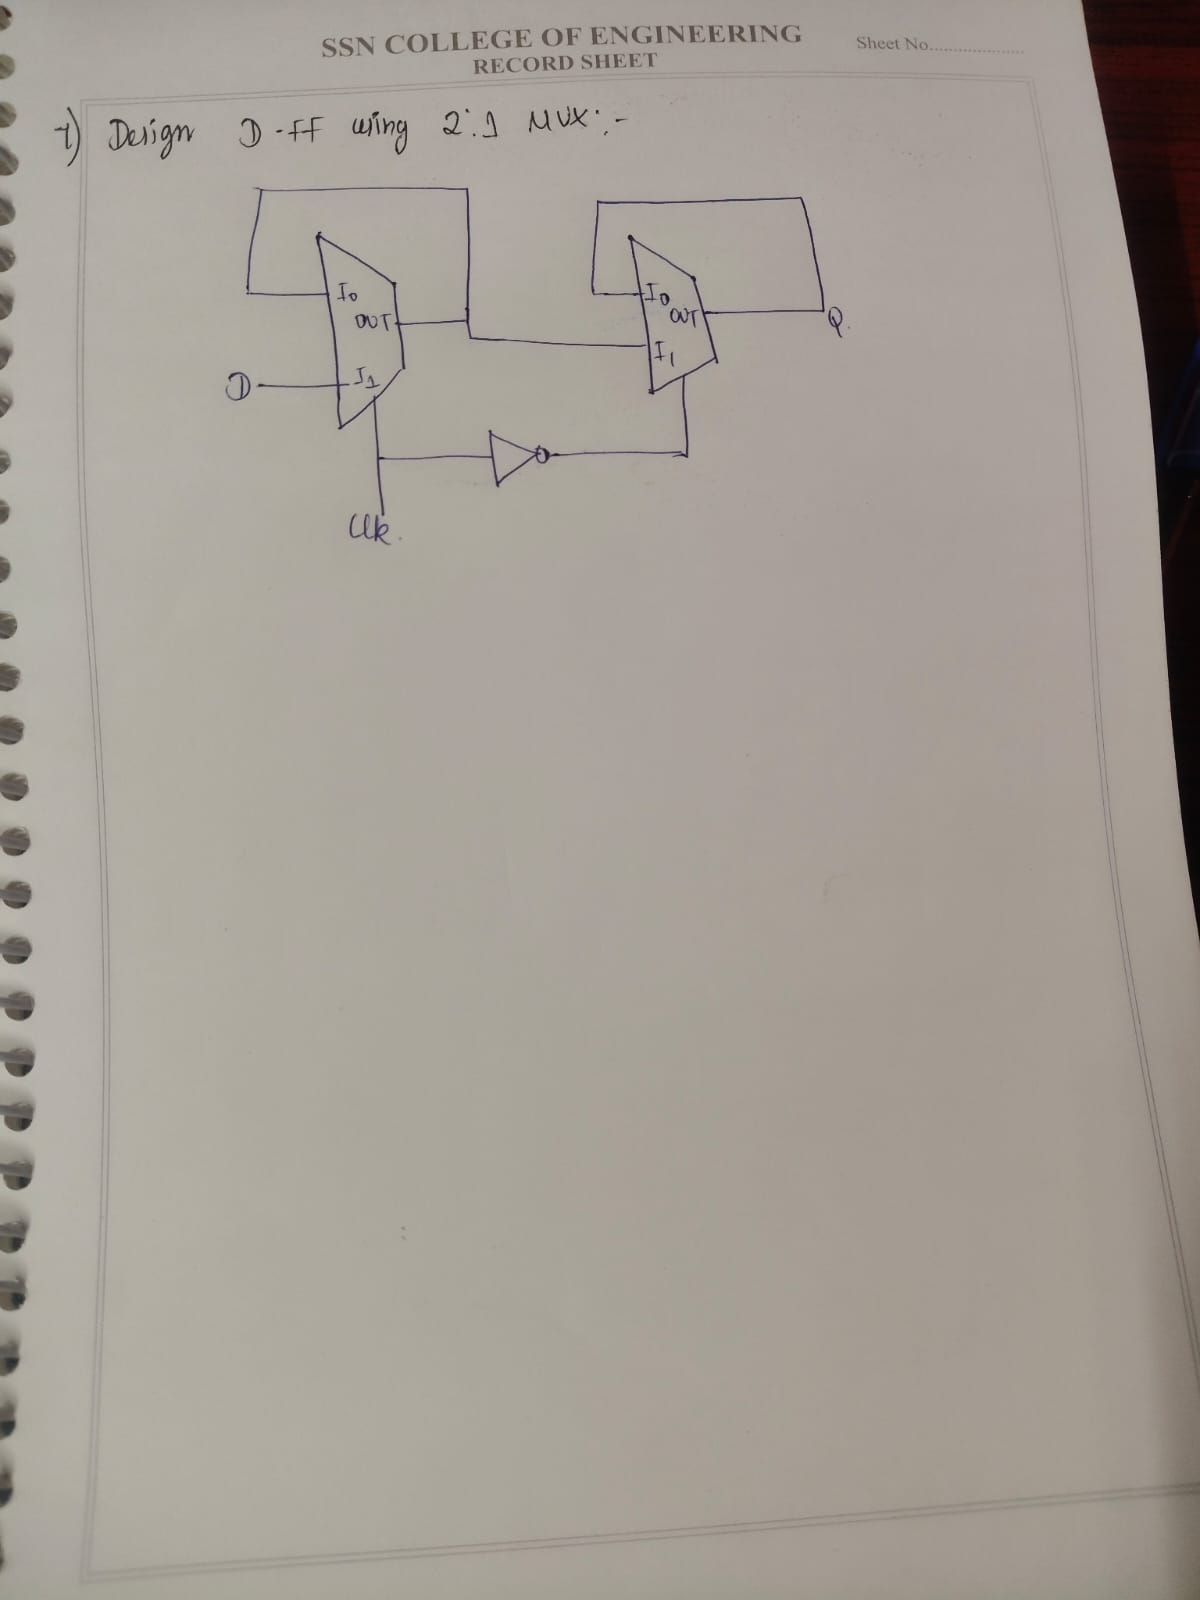 SSN COLLEGE OF ENGINEERING
RECORD SHEET
Sheet No....................
7) Design D-FF using 2:1 MUX:-
I0
OUT
D
I1
I0
OUT
I1
Q.
Clk.